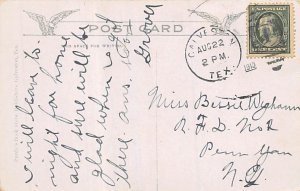 POST CARD
SPACE FOR WRITING
I will leave to-
night for home
and sure will be
glad when I get
there. ans.
Grover
GALVESTON
AUG 22
2 PM.
TEX.
U.S. POSTAGE
ONE CENT
Miss Bessie
R.F.D. No 2
Penn Yan
N.Y.